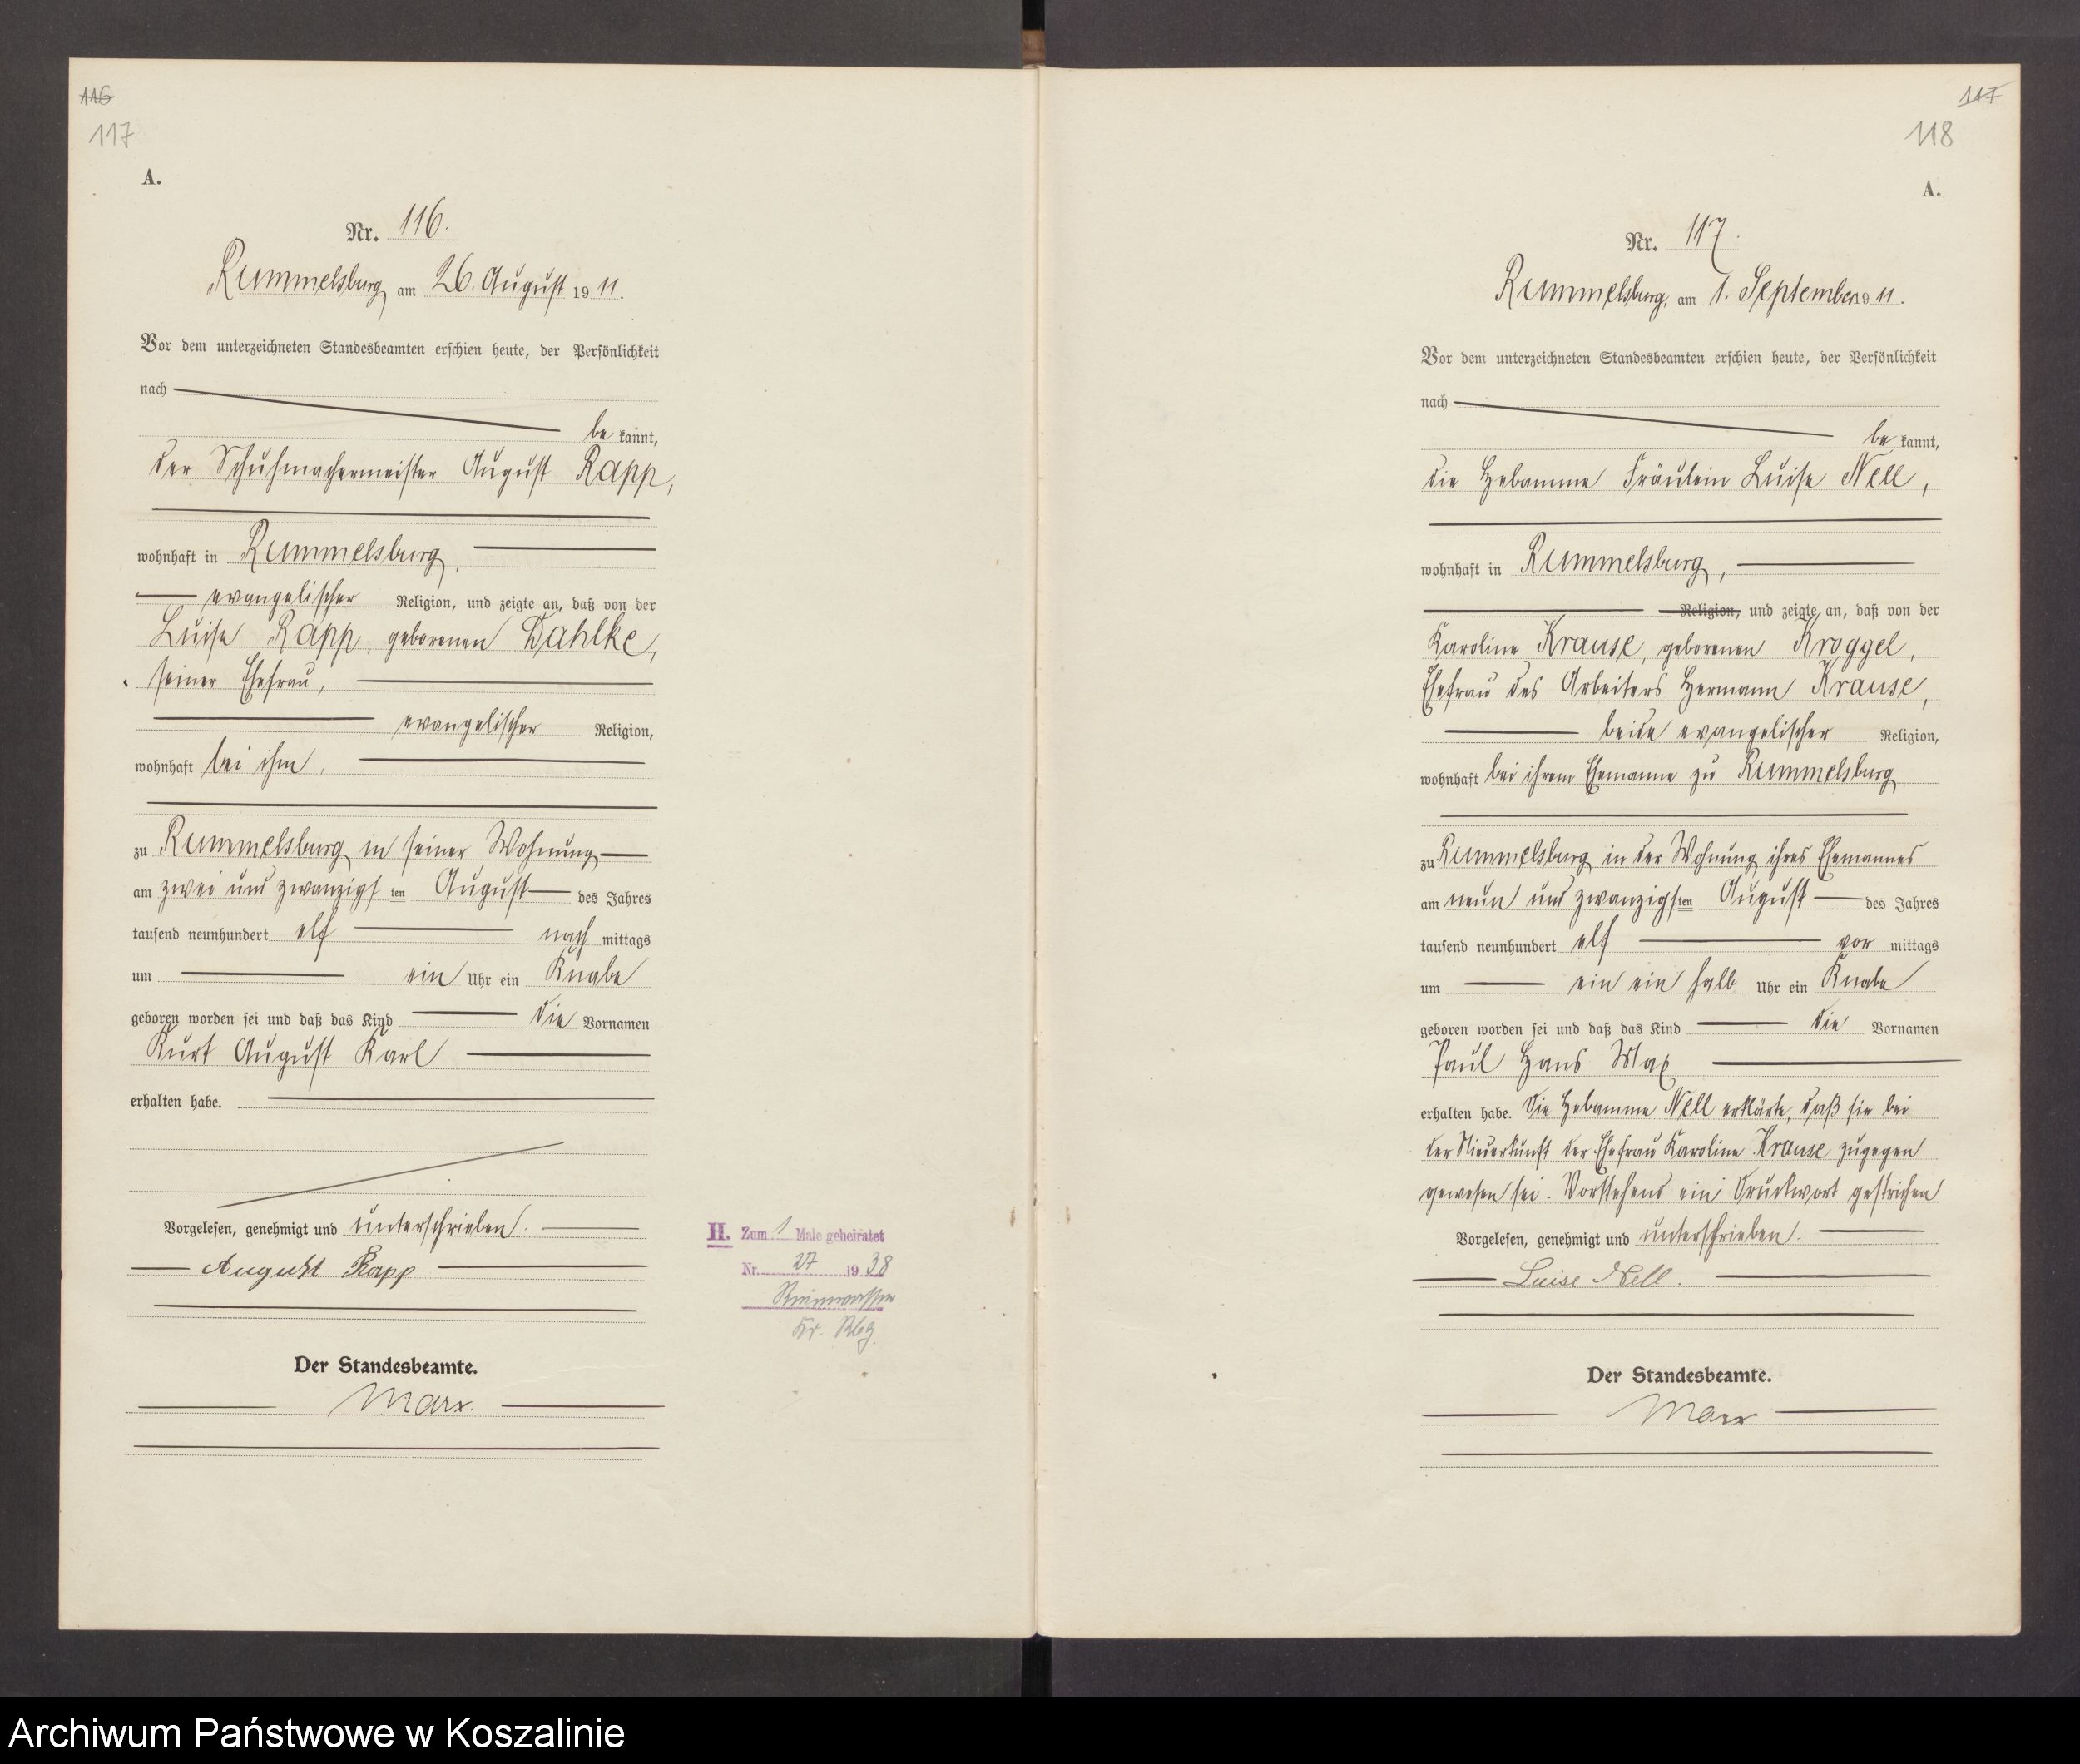 116
117
A.
Nr. 116.
Rummelsburg am 26. August 1911.
Vor dem unterzeichneten Standesbeamten erschien heute, der Persönlichkeit
nach
be kannt,
der Schuhmachermeister August Rapp,
wohnhaft in Rummelsburg,
evangelischer Religion, und zeigte an, daß von der
Luise Rapp, geborenen Dahlke,
seiner Ehefrau,
evangelischer Religion,
wohnhaft bei ihm,
zu Rummelsburg in seiner Wohnung
am zwei und zwanzigsten August des Jahres
tausend neunhundert elf nach mittags
um ein Uhr ein Knabe
geboren worden sei und daß das Kind die Vornamen
Kurt August Karl
erhalten habe.
Vorgelesen, genehmigt und unterschrieben.
August Rapp
Der Standesbeamte.
Marx.
H. Zum 1 Male geheiratet
Nr. 27 1938
Reinwasser
Kr. Rbg.
117
118
A.
Nr. 117.
Rummelsburg, am 1. September 1911.
Vor dem unterzeichneten Standesbeamten erschien heute, der Persönlichkeit
nach
be kannt,
die Hebamme Fräulein Luise Nell,
wohnhaft in Rummelsburg,
Religion, und zeigte an, daß von der
Karoline Krause, geborenen Kroggel,
Ehefrau des Arbeiters Hermann Krause,
beide evangelischer Religion,
wohnhaft bei ihrem Ehemanne zu Rummelsburg
zu Rummelsburg in der Wohnung ihres Ehemannes
am neun und zwanzigsten August des Jahres
tausend neunhundert elf vor mittags
um ein ein halb Uhr ein Knabe
geboren worden sei und daß das Kind die Vornamen
Paul Hans Max
erhalten habe. Die Hebamme Nell erklärte, daß sie bei
der Niederkunft der Ehefrau Karoline Krause zugegen
gewesen sei. Vorstehend ein Druckwort gestrichen
Vorgelesen, genehmigt und unterschrieben.
Luise Nell.
Der Standesbeamte.
Marx
Archiwum Państwowe w Koszalinie